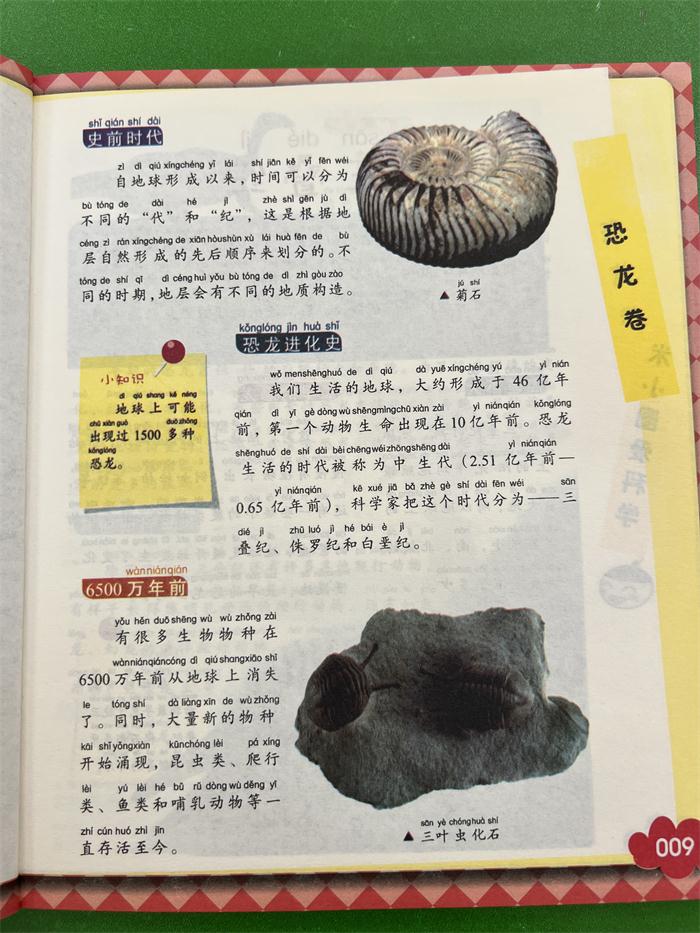 shǐ qián shí dài
史前时代
zì dì qiú xíngchéng yǐ lái shí jiān kě yǐ fēn wéi
自地球形成以来，时间可以分为
bù tóng de dài hé jì zhè shì gēn jù dì
不同的“代”和“纪”，这是根据地
céng zì rán xíngchéng de xiān hòu shùn xù lái huà fēn de bù
层自然形成的先后顺序来划分的。不
tóng de shí qī dì céng huì yǒu bù tóng de dì zhì gòu zào
同的时期，地层会有不同的地质构造。
jú shí
▲菊石
恐龙卷
kǒnglóng jìn huà shǐ
恐龙进化史
wǒ menshēnghuó de dì qiú dà yuē xíngchéng yú yì nián
我们生活的地球，大约形成于 46 亿年
qián dì yī gè dòng wù shēngmìngchū xiàn zài yì niánqián kǒnglóng
前，第一个动物生命出现在10亿年前。恐龙
shēnghuó de shí dài bèi chēngwéi zhōngshēng dài yì niánqián
生活的时代被称为中生代（2.51 亿年前—
yì niánqián kē xué jiā bǎ zhè gè shí dài fēn wéi sān
0.65 亿年前），科学家把这个时代分为——三
dié jì zhū luó jì hé bái è jì
叠纪、侏罗纪和白垩纪。
小知识
dì qiú shang kě néng
地球上可能
chū xiàn guò duō zhǒng
出现过 1500 多种
kǒnglóng
恐龙。
wànniánqián
6500 万年前
yǒu hěn duō shēng wù wù zhǒng zài
有很多生物物种在
wànniánqiáncóng dì qiú shangxiāo shī
6500 万年前从地球上消失
le tóng shí dà liàng xīn de wù zhǒng
了。同时，大量新的物种
kāi shǐ yǒngxiàn kūnchóng lèi pá xíng
开始涌现，昆虫类、爬行
lèi yú lèi hé bǔ rǔ dòng wù děng yī
类、鱼类和哺乳动物等一
zhí cún huó zhì jīn
直存活至今。
sān yè chónghuà shí
▲三叶虫化石
009